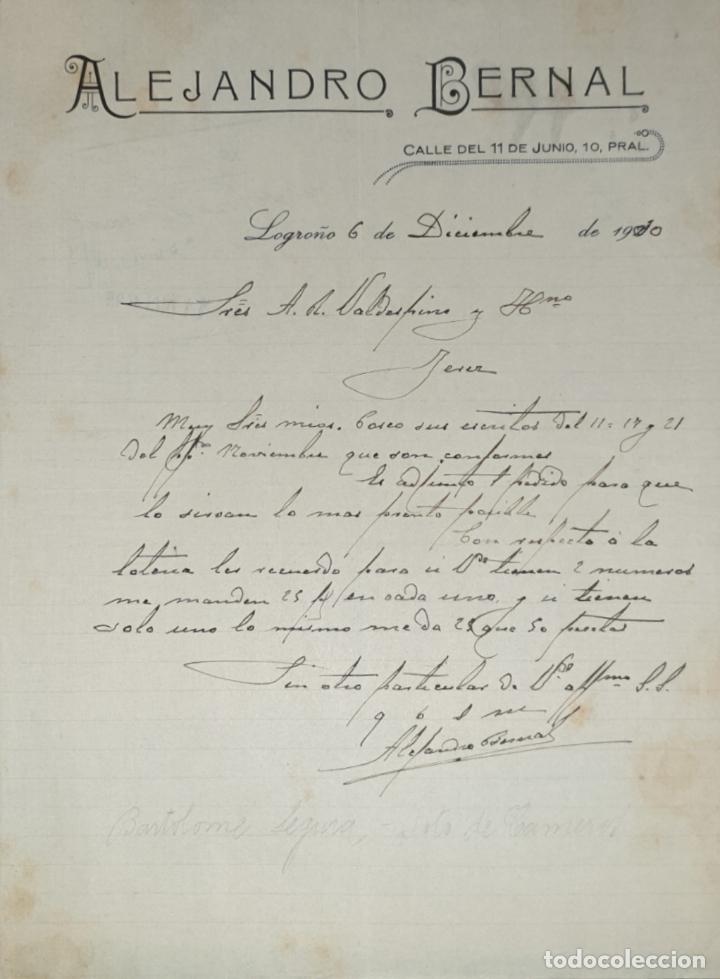 ALEJANDRO BERNAL
CALLE DEL 11 DE JUNIO, 10, PRAL.
Logroño 6 de Diciembre de 1910
Srēs A. R. Valdespino y Hno
Jerez
Muy Srēs mios. Poseo sus escritos del 11 = 17 y 21
del Noviembre que son conformes
Es adjunto 1 pedido para que
lo sirvan lo mas pronto posible
Con respecto á la
loteria les recuerdo para si Vds tienen 2 numeros
me manden 25 en cada uno, y si tienen
solo uno lo mismo me da 25 que 50 pesetas
Sin otro particular de Vds affmo S. S.
q b s m
Alejandro Bernal
Bartolome Segura, - Soto de Cameros
todocoleccion